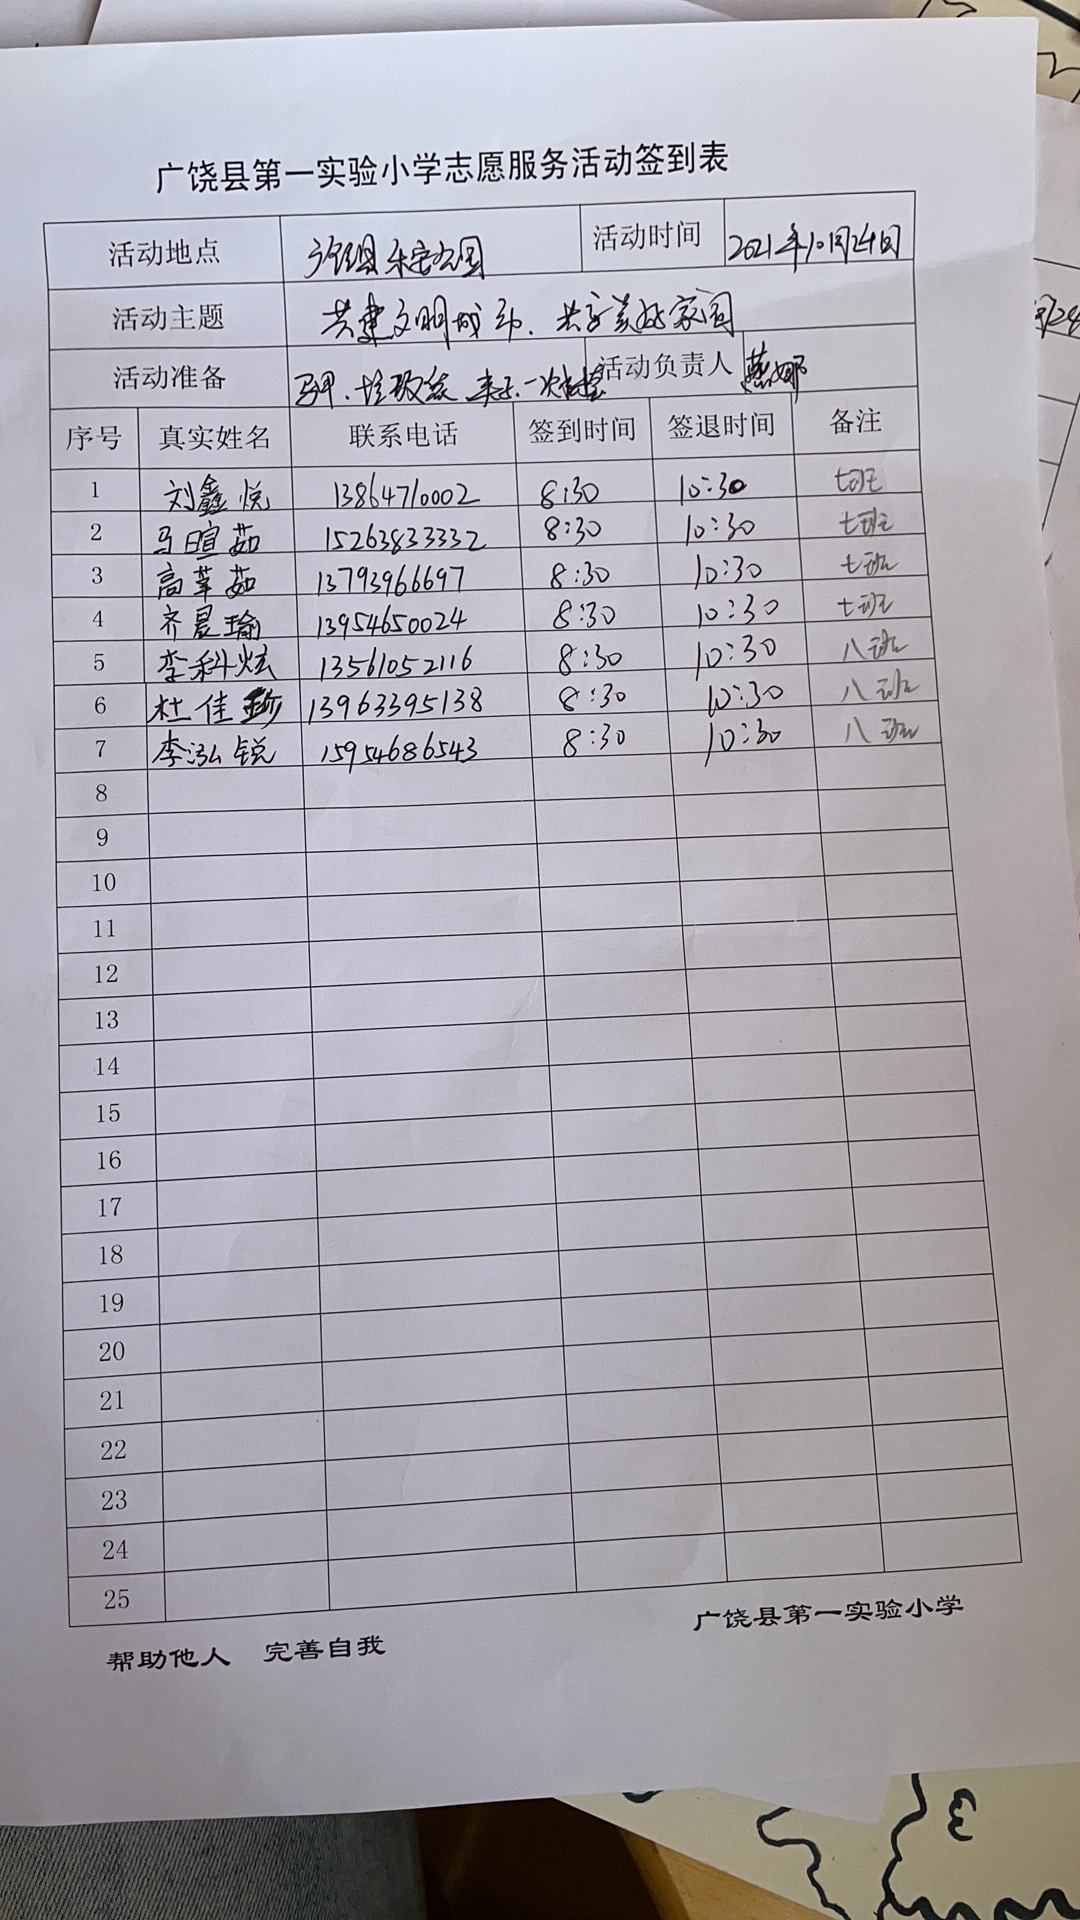 广饶县第一实验小学志愿服务活动签到表
活动地点 广饶县乐安公园 活动时间 2021年10月24日
活动主题 共建文明城市、共享美好家园
活动准备 马甲、垃圾袋、夹子、一次性 活动负责人 燕娜
序号 真实姓名 联系电话 签到时间 签退时间 备注
1 刘鑫悦 13864710002 8:30 10:30 七班
2 马暄茹 15263833332 8:30 10:30 七班
3 高莘茹 13793966697 8:30 10:30 七班
4 齐晨瑜 13954650024 8:30 10:30 七班
5 李科炫 13561052116 8:30 10:30 八班
6 杜佳 13963395138 8:30 10:30 八班
7 李泓锐 15954686543 8:30 10:30 八班
8
9
10
11
12
13
14
15
16
17
18
19
20
21
22
23
24
25
帮助他人 完善自我 广饶县第一实验小学
3